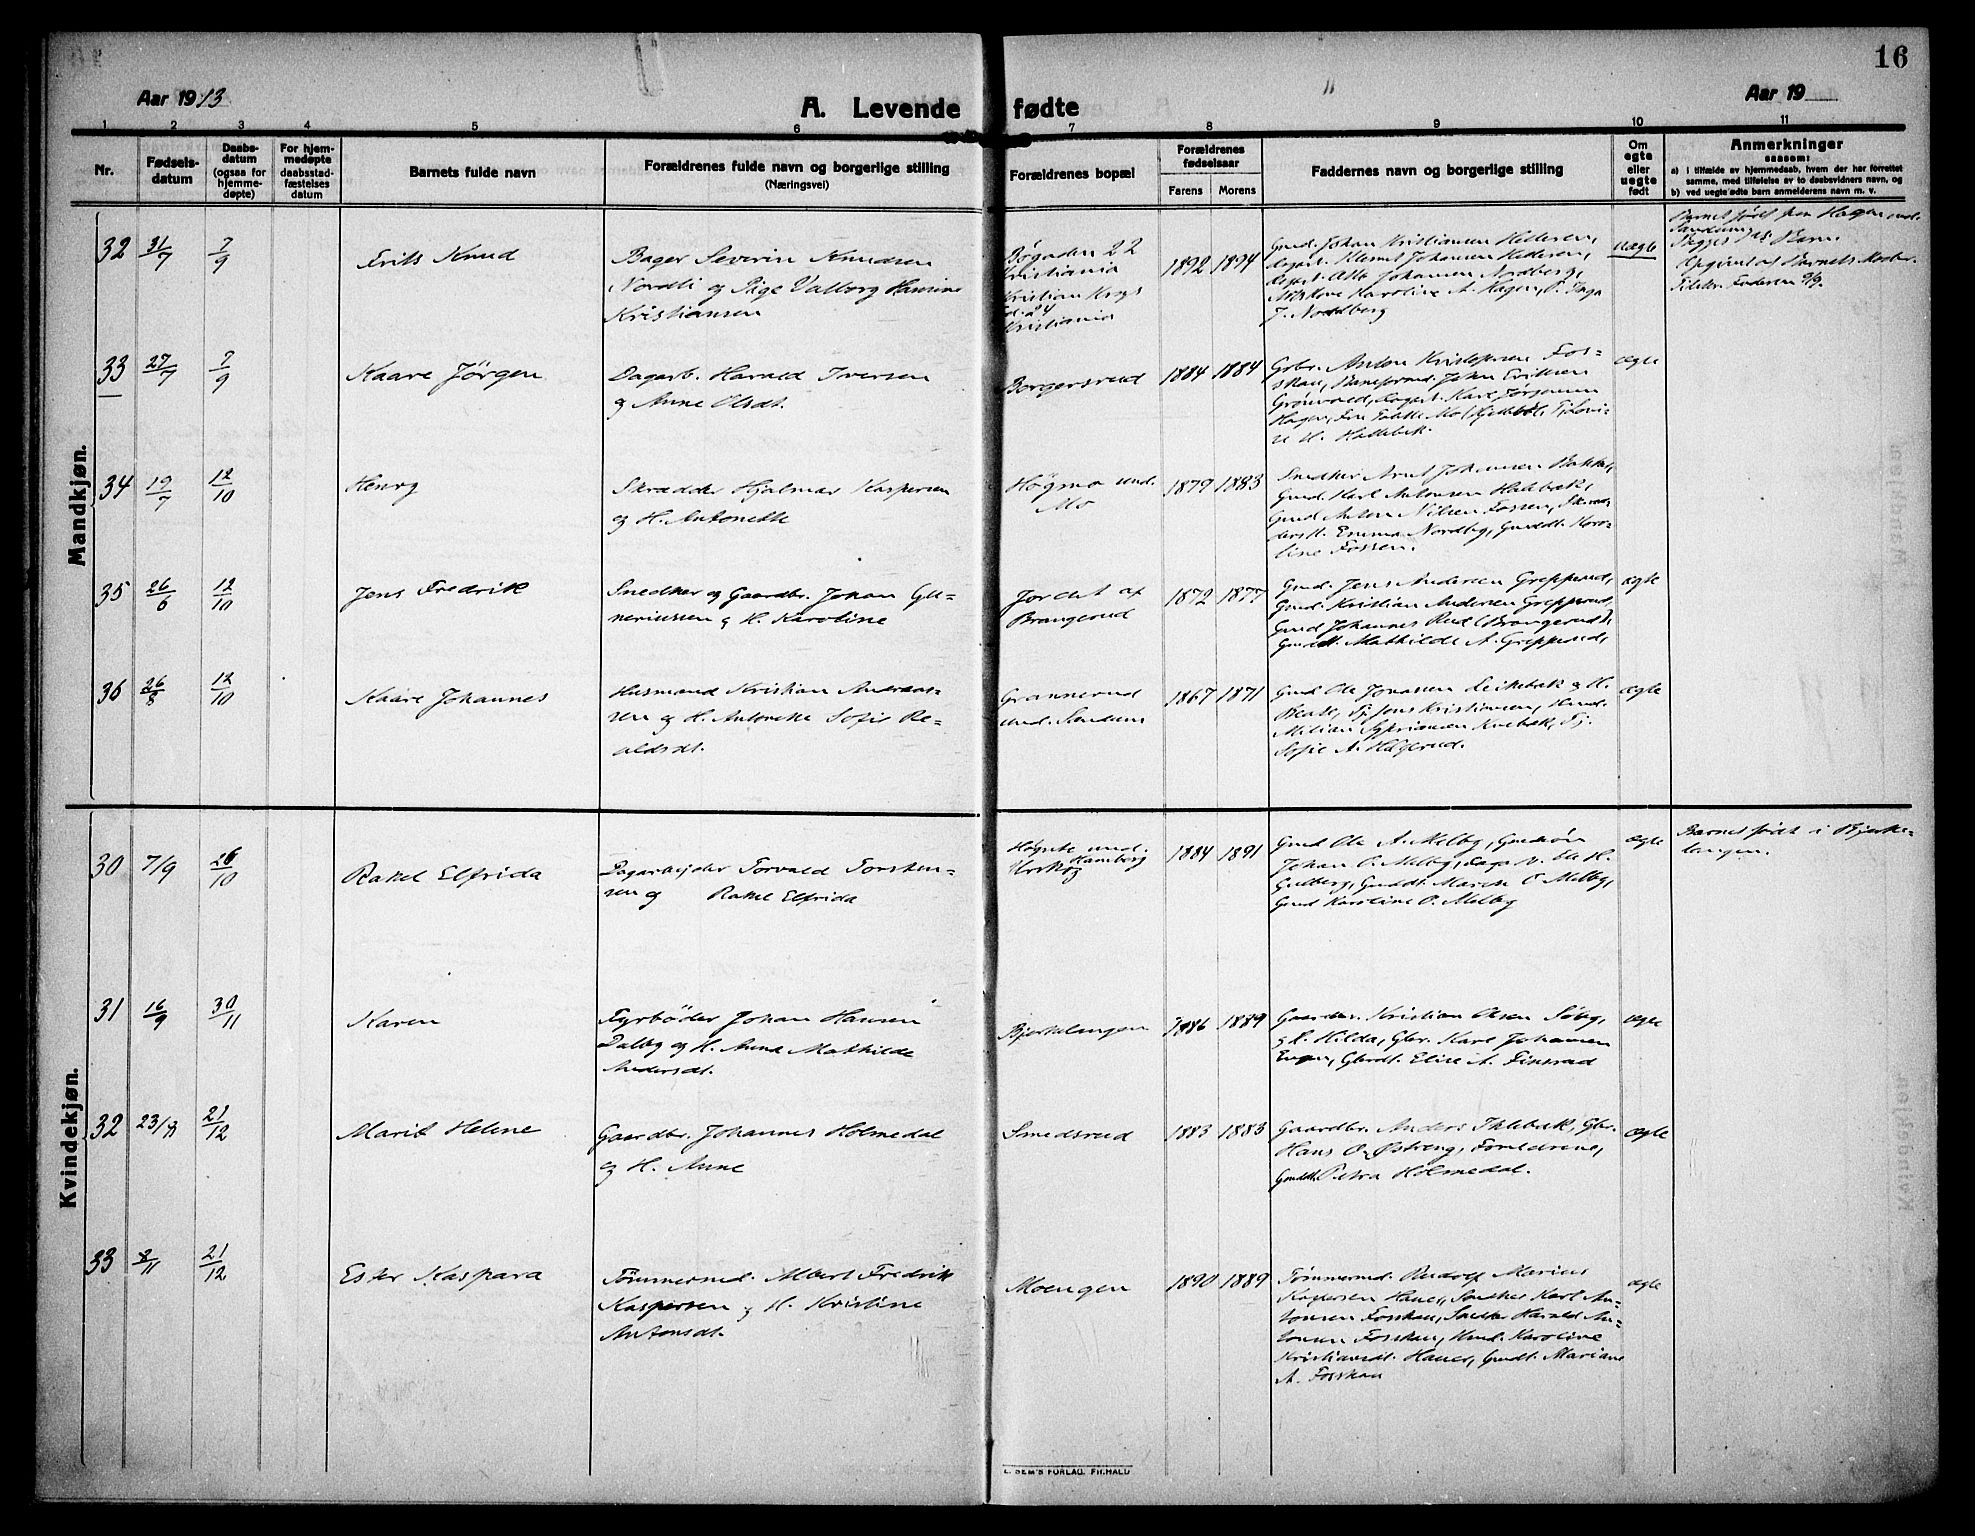 16
Aar 1913
A. Levende fødte
Aar 19
1 2 3 4 5 6 7 8 9 10 11
Nr.
Fødsels-
datum
Daabs-
datum
(ogsaa for
hjemme-
døpte)
For hjem-
medøpte
daabsstad-
fæstelses
datum
Barnets fulde navn
Forældrenes fulde navn og borgerlige stilling
(Næringsvei)
Forældrenes bopæl
Forældrenes
fødselsaar
Farens Morens
Faddernes navn og borgerlige stilling
Om
egte
eller
uegte
født
Anmerkninger
saasom:
a) i tilfælde av hjemmedaab, hvem der har forrettet
samme, med tilføielse av to daabsvidners navn, og
b) ved uegte fødte barn anmelderens navn m. v.
Mandkjøn.
32 31/7 7/9
Frits Knud
Bager Severin Knudsen
Nordli og Pige Valborg Hansine
Kristiansen
Bøgaden 22
Kristiania
Kristian Krogs
Kristiania
1892 1894
Gmd. Johan Kristiansen
Johansen
Johansen Nordberg,
Karoline A. Hagen, P. Inga
J. Nordberg
uægte
Barnet født paa Hagen und.
Sandum
Begges 1ste Barn.
Opgivet av Barnets Moder.
Tilskr. Faderen 9/9.
33 27/7 7/9
Kaare Jörgen
Dagarb. Harald Iversen
og Anne Olsdt.
Borgersrud
1884 1884
Grbr. Anton Kristofersen Fos-
skau, Baneformd. Johan Eriksen
Grønvold, Dagarb. Karl Jørgensen
Hagen,
ægte
34 19/7 12/10
Henry
Skrædder Hjalmar Kaspersen
og H. Antonette
Högmo und.
Mo
1879 1883
Snedker Arnt Johansen Bakke,
Gmd. Karl Antonsen Halebæk,
Gmd Anton Nilsen Fossen, Skræd-
dersk. Emma Nordby, Gmddt. Karo-
line Fossen.
35 26/6 12/10
Jens Fredrik
Snedker og Gaardbr. Johan Gu-
neriussen og H. Karoline
Jordet af
Brangerud
1872 1877
Gmd. Jens Andersen Grepperud,
Gmd. Kristian Andersen Grepperud,
Gmd Johannes Rud (Brangerud),
Gmddt. Mathilde A. Grepperud,
ægte
36 26/8 12/10
Kaare Johannes
Husmand Kristian Andreas-
sen og H. Antonette Sofie Re-
aldsdt.
Grannerud
und. Sandum
1867 1871
Gmd Ole Jonassen Leikebæk og H.
Beate, Tj. Jens Kristiansen, Hmd.
Milian Syprianen Knebæk, Tj.
Sofie A. Helgerud.
ægte
Kvindekjøn.
30 7/9 26/10
Rakel Elfrida
Dagarbejder Torvald Torsten-
sen og Rakel Elfrida
und.
Hamborg
Urskog
1884 1891
Gmd Ole A. Melby, Gmdsøn
Johan O. Melby, Dagarb. Ole H.
Gulberg, Gmddt. Maren O. Melby,
Gmd Karoline O. Melby
ægte
Barnet født i Bjørke-
langen.
31 16/9 30/11
Karen
Fyrbøder Johan Hansen
Dalby og H. Anna Mathilde
Andersdt.
Bjørkelangen
1886 1889
Gaardbr. Kristian Olsen Søby,
og H. Hilda, Gbr. Karl Johansen
Enger, Gbrdt. Elise A. Finsrud
ægte
32 23/8 21/12
Marit Helene
Gaardbr. Johannes Holmedal
og H. Anne
Smedsrud
1883 1883
Gaardbr. Anders Ihlebæk, Gbr.
Hans O. Østreng, Forældrene,
Gmddt. Petra Holmedal.
ægte
33 8/11 21/12
Ester Kaspara
Tömmermd. Albert Fredrik
Kaspersen og H. Kristine
Antonsdt.
Moengen
1890 1889
Tömmermd. Rudolf Marius
Kaspersen Haneb, Snedker Karl An-
tonsen Fosskau, Snedker Harald An-
tonsen Fosskau, Hmd. Karoline
Kristiansdt. Haneb, Gmdt. Mariane
A. Fosskau
ægte
E. SEM'S FORLAG, FR.HALD